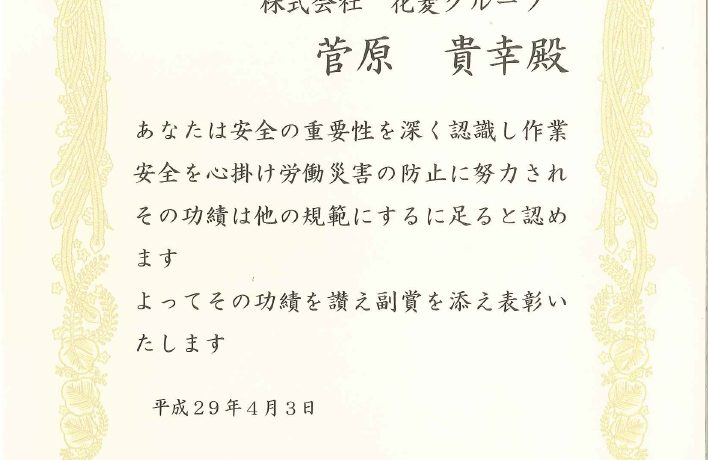 株式会社 花菱グループ
菅原 貴幸殿
あなたは安全の重要性を深く認識し作業
安全を心掛け労働災害の防止に努力され
その功績は他の規範にするに足ると認め
ます
よってその功績を讃え副賞を添え表彰い
たします
平成29年4月3日